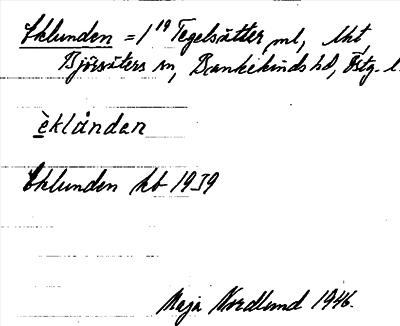 Eklunden = 1/19 Tegelsätter ml, lht,
Björsäters sn, Bankekinds hd, Östg. l.
èklåndan
Eklunden kb 1939
Maja Nordlund 1946.